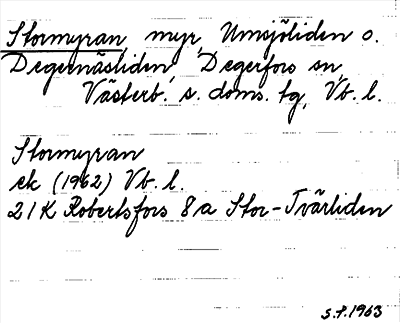 Stormyran myr, Umsjöliden o.
Degernäsliden, Degerfors sn,
Västerb:s s. doms. tg, Vb. l.
Stormyran
ek (1962) Vb. l.
21K Robertsfors 8a Stor-Tvärliden
S.F. 1963